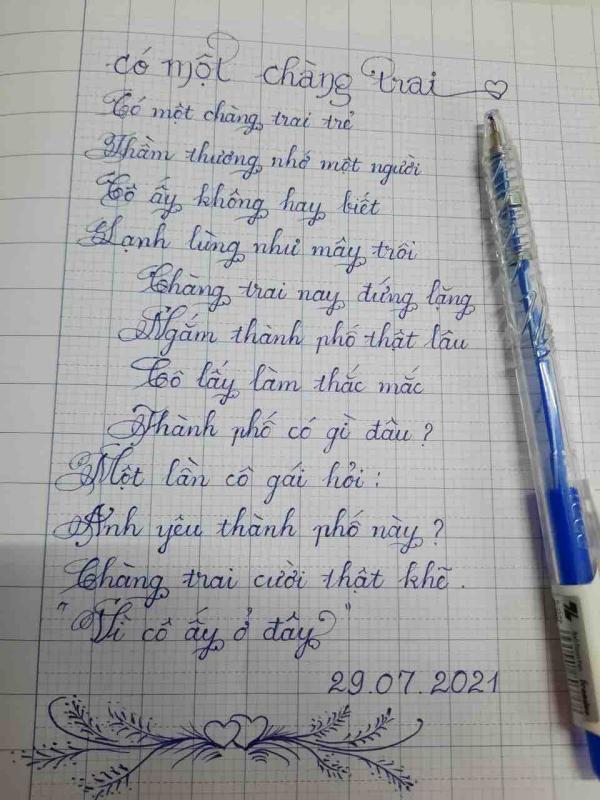 có một chàng trai
Có một chàng trai trẻ
Thầm thương nhớ một người
Cô ấy không hay biết
Lạnh lùng như mây trôi
Chàng trai nay đứng lặng
Ngắm thành phố thật lâu
Cô lấy làm thắc mắc
Thành phố có gì đâu ?
Một lần cô gái hỏi :
Anh yêu thành phố này ?
Chàng trai cười thật khẽ .
"Vì cô ấy ở đây"
29.07.2021